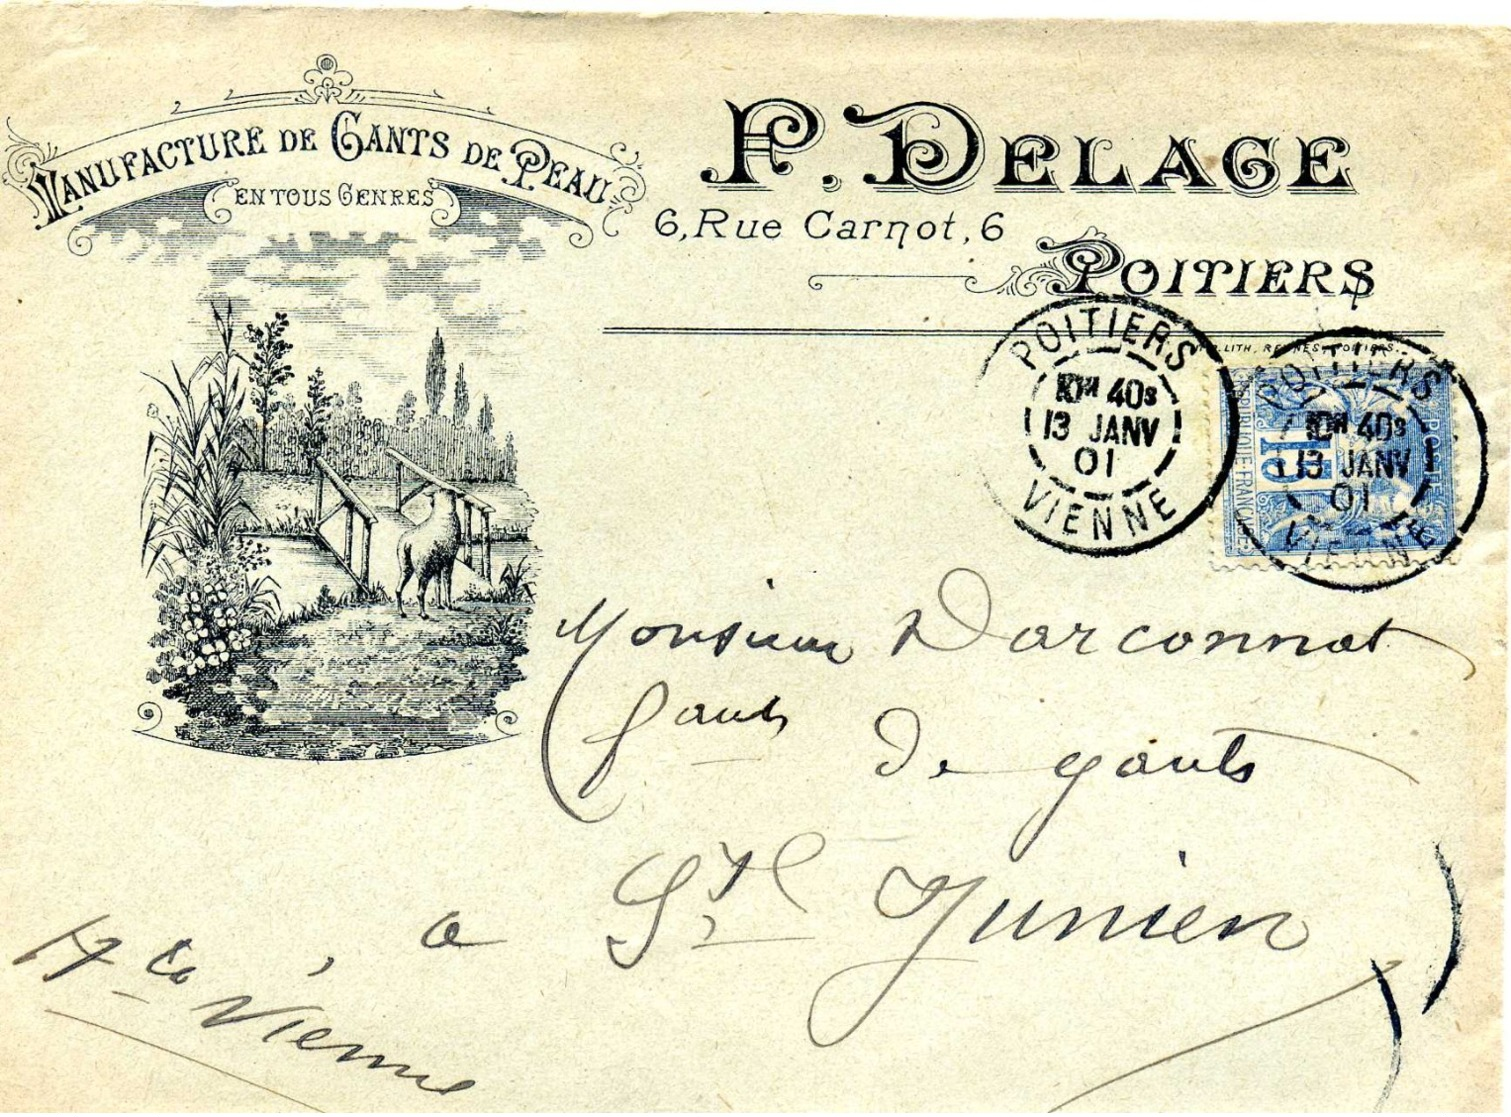 MANUFACTURE DE GANTS DE PEAU
EN TOUS GENRES
P. DELAGE
6, Rue Carnot, 6
POITIERS
POITIERS
10H 40S
13 JANV
01
VIENNE
POITIERS
10H 40S
13 JANV
01
VIENNE
15
Monsieur Darconnat
fabt de gants
à St Junien
Hte Vienne